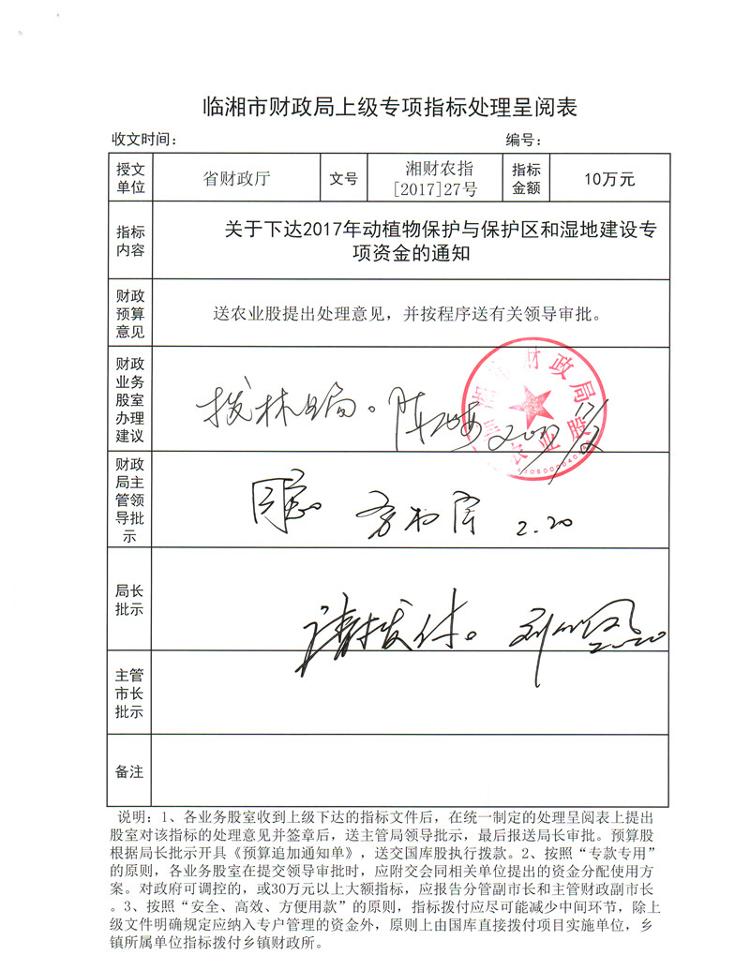 临湘市财政局上级专项指标处理呈阅表
收文时间： 编号：
授文单位 省财政厅 文号 湘财农指[2017]27号 指标金额 10万元
指标内容 关于下达2017年动植物保护与保护区和湿地建设专
项资金的通知
财政预算意见 送农业股提出处理意见，并按程序送有关领导审批。
财政业务股室办理建议 拨林业局。
财政局主管领导批示 同意 2.20
局长批示 请拨付。 2.20
主管市长批示
备注
说明：1、各业务股室收到上级下达的指标文件后，在统一制定的处理呈阅表上提出
股室对该指标的处理意见并签章后，送主管局领导批示，最后报送局长审批。预算股
根据局长批示开具《预算追加通知单》，送交国库股执行拨款。2、按照“专款专用”
的原则，各业务股室在提交领导审批时，应附交会同相关单位提出的资金分配使用方
案。对政府可调控的，或30万元以上大额指标，应报告分管副市长和主管财政副市长
。3、按照“安全、高效、方便用款”的原则，指标拨付应尽可能减少中间环节，除上
级文件明确规定应纳入专户管理的资金外，原则上由国库直接拨付项目实施单位，乡
镇所属单位指标拨付乡镇财政所。